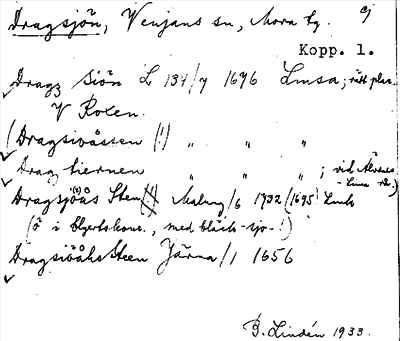 Dragsjön, Venjans sn, Mora tg. ej
Kopp. l.
Dragz Siön L 134/7 1696 Limsa; rätt plac.
V Rosen.
(Dragsioåssen (!) " " "
Drag tiernen " " " ; vid Älvdals-Lima rå.)
Dragsjöås Sten (!) Malung/6 1732 (1695 Limb
(ö i blyertskonc., med bläck -sjo- !)
Dragsiöåhs Steen Järna/1 1656
B. Lindén 1933.